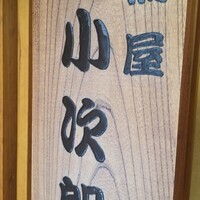 屋
小次郎